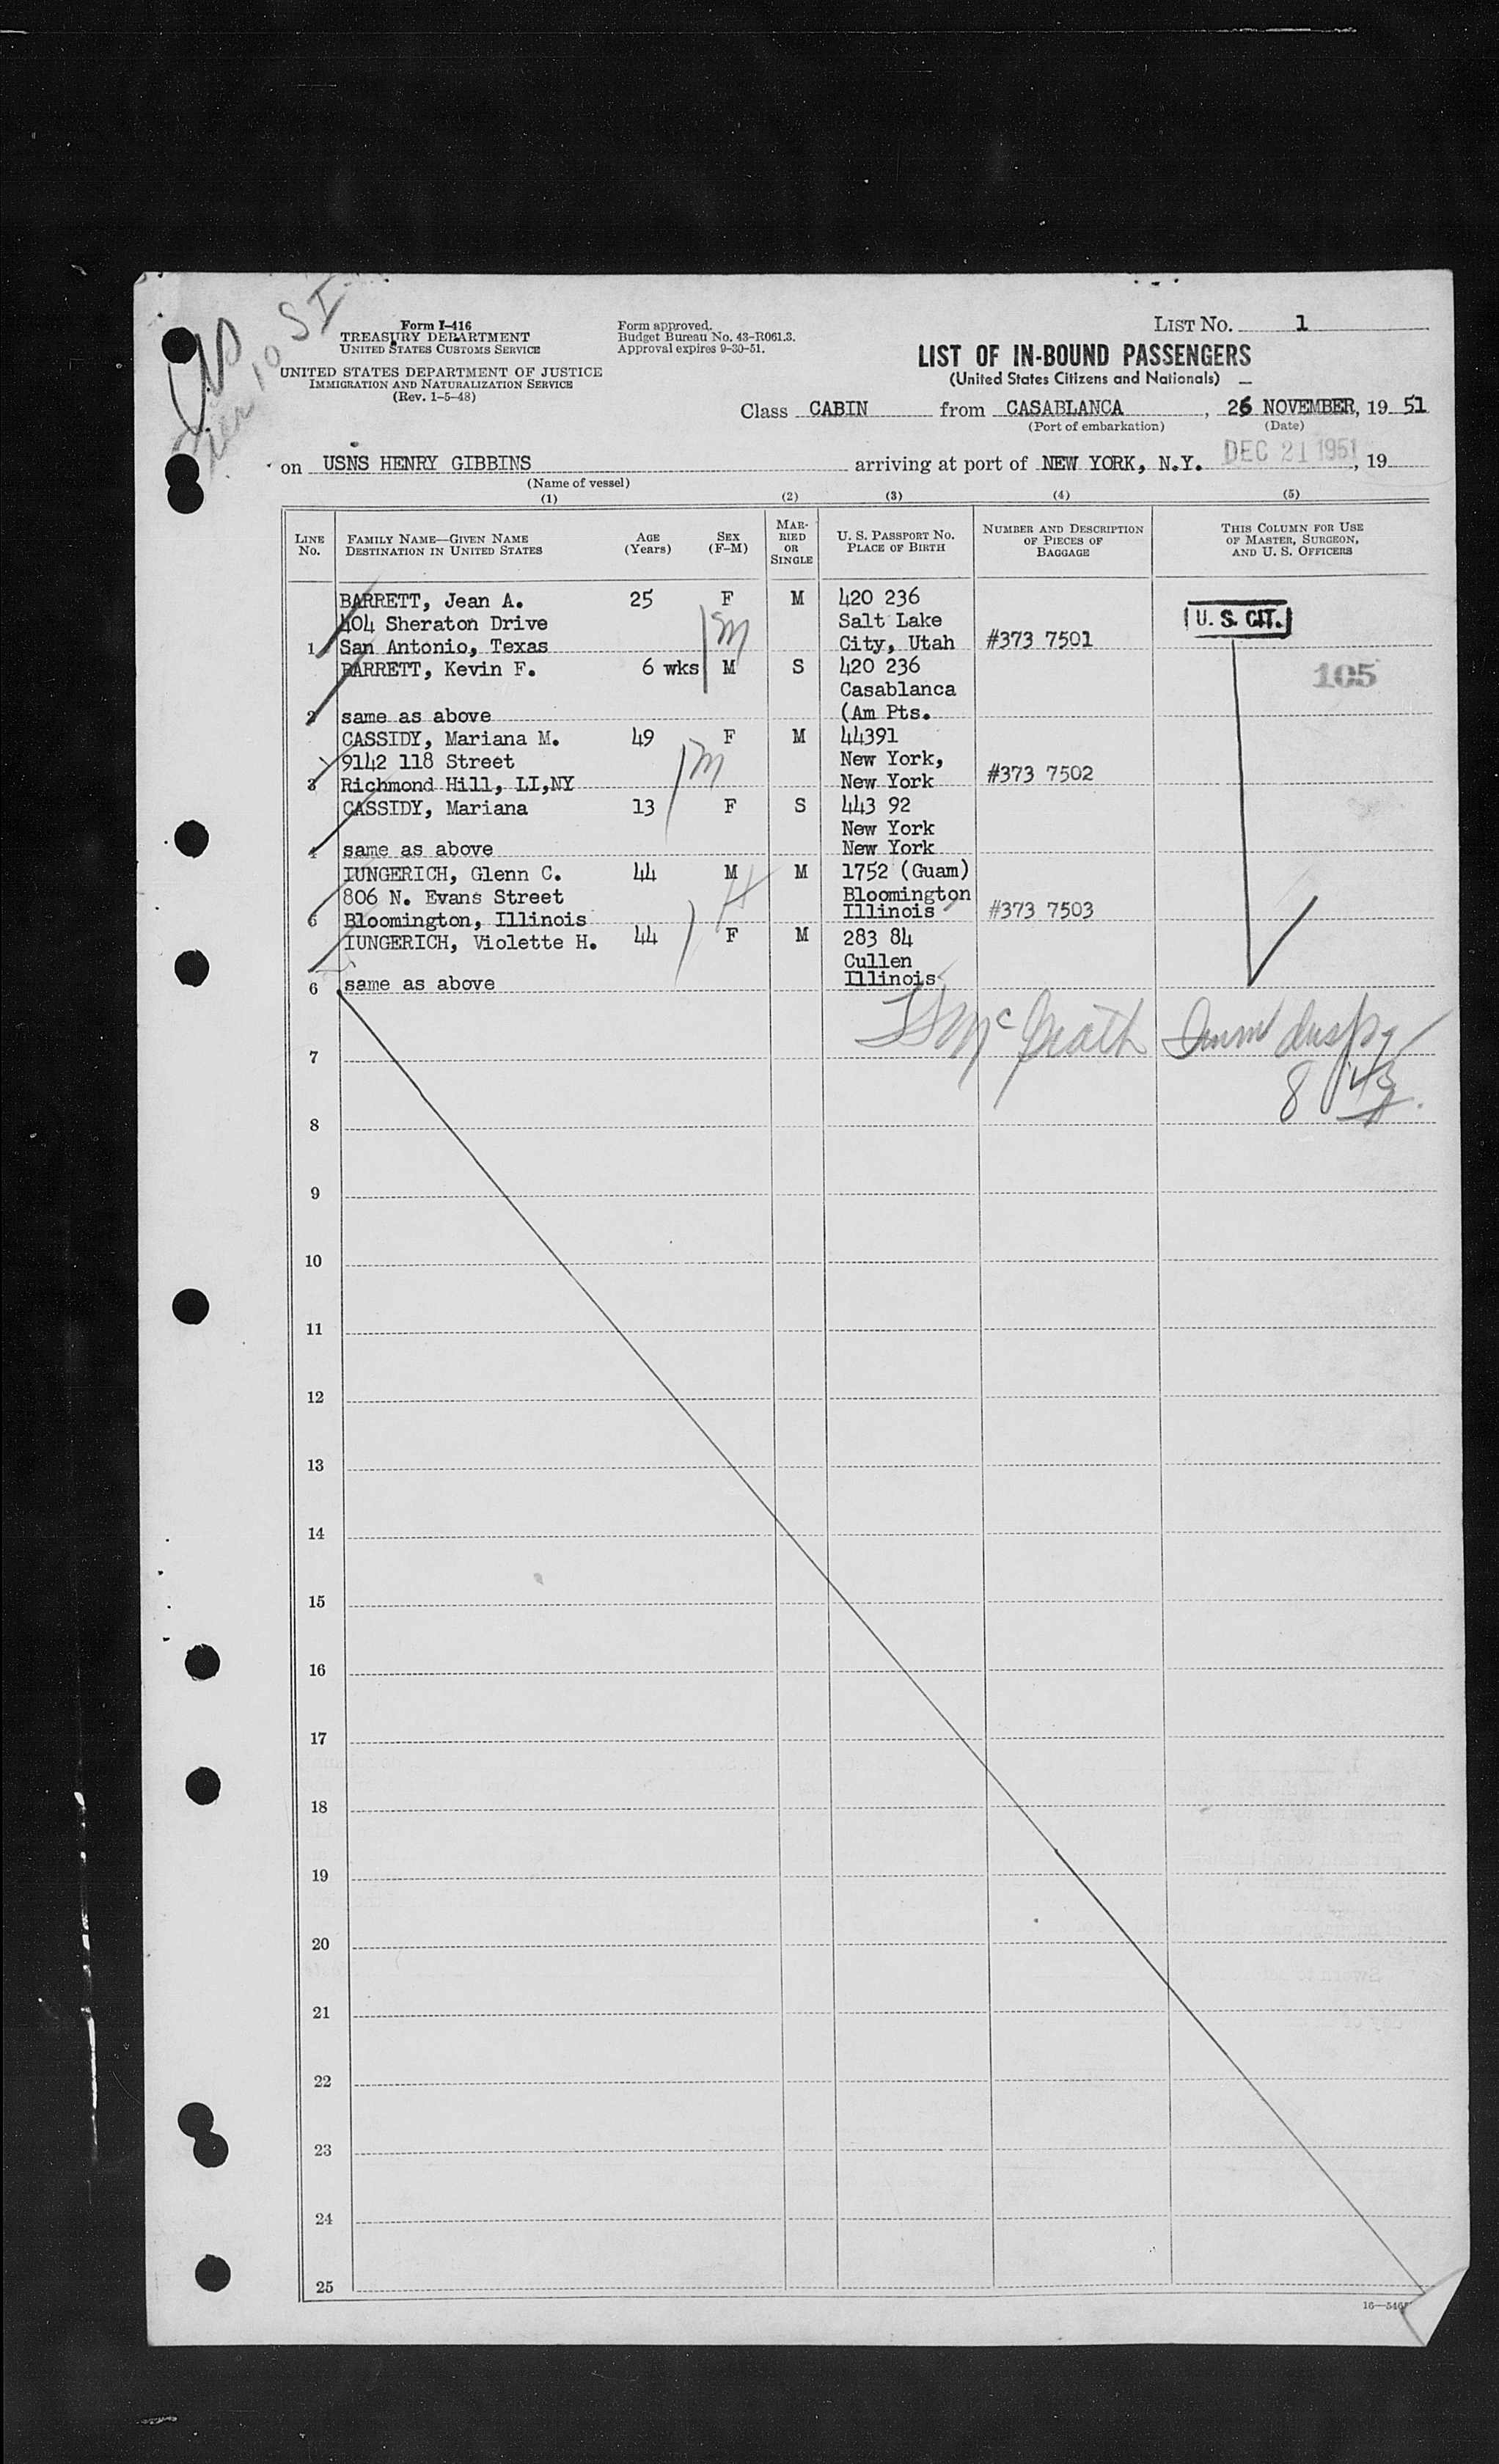 Form I-416
TREASURY DEPARTMENT
UNITED STATES CUSTOMS SERVICE
UNITED STATES DEPARTMENT OF JUSTICE
IMMIGRATION AND NATURALIZATION SERVICE
(Rev. 1-5-48)
Form approved.
Budget Bureau No. 43-R061.3.
Approval expires 9-30-51.
LIST NO. 1
LIST OF IN-BOUND PASSENGERS
(United States Citizens and Nationals)
Class CABIN from CASABLANCA, 26 NOVEMBER, 19 51
(Port of embarkation) (Date)
on USNS HENRY GIBBINS arriving at port of NEW YORK, N.Y. DEC 21 1951, 19
(Name of vessel)
(1) (2) (3) (4) (5)
LINE NO. FAMILY NAME—GIVEN NAME DESTINATION IN UNITED STATES AGE (Years) SEX (F-M) MARRIED OR SINGLE U. S. PASSPORT NO. PLACE OF BIRTH NUMBER AND DESCRIPTION OF PIECES OF BAGGAGE THIS COLUMN FOR USE OF MASTER, SURGEON, AND U. S. OFFICERS
BARRETT, Jean A. 25 F M 420 236
404 Sheraton Drive Salt Lake U. S. CIT.
1 San Antonio, Texas City, Utah #373 7501
BARRETT, Kevin F. 6 wks M S 420 236 105
Casablanca
2 same as above (Am Pts.
CASSIDY, Mariana M. 49 F M 44391
9142 118 Street New York,
3 Richmond Hill, LI,NY New York #373 7502
CASSIDY, Mariana 13 F S 443 92
New York
4 same as above New York
IUNGERICH, Glenn C. 44 M M 1752 (Guam)
806 N. Evans Street Bloomington
5 Bloomington, Illinois Illinois #373 7503
IUNGERICH, Violette H. 44 F M 283 84
Cullen
6 same as above Illinois
McGrath
7
8
9
10
11
12
13
14
15
16
17
18
19
20
21
22
23
24
25